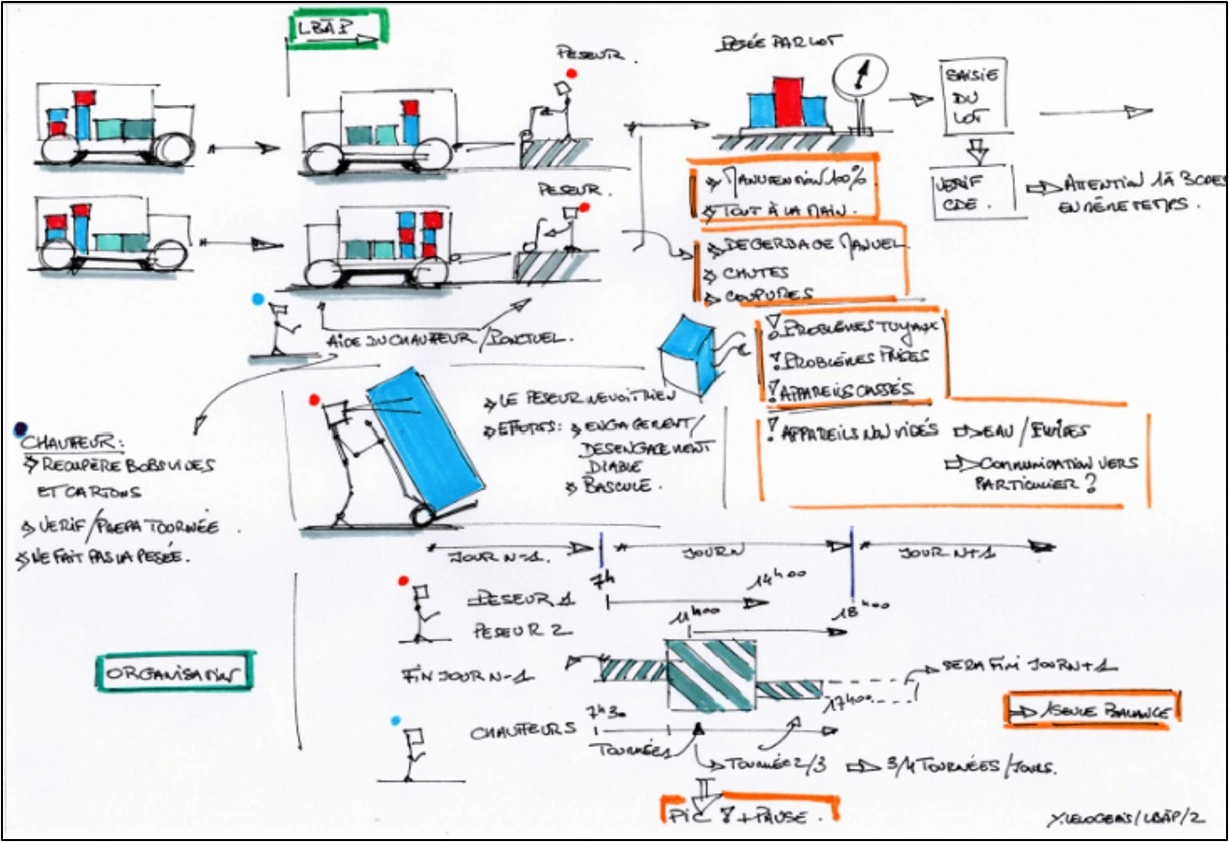 LBÂP
PESEUR.
PESÉE PAR LOT
SAISIE
DU
LOT
VERIF
CDE.
ATTENTION 1 À 3 CDES
EN MÊME TEMPS.
MANUTENTION 100%
TOUT À LA MAIN.
PESEUR.
DEGERBAGE MANUEL.
CHUTES
COUPURES
AIDE DU CHAUFFEUR/PONCTUEL.
! PROBLÈMES TUYAUX
! PROBLÈMES PRISES
! APPAREILS CASSÉS
! APPAREILS NON VIDÉS
EAU/FLUIDES
COMMUNICATION VERS
PARTICULIER ?
LE PESEUR NE VOIT RIEN
EFFORTS:
ENGAGEMENT/
DESENGAGEMENT
DIABLE
BASCULE.
CHAUFFEUR:
RECUPÈRE BOBS VIDES
ET CARTONS
VERIF/PREPA TOURNÉE.
NE FAIT PAS LA PESÉE.
JOUR N-1.
JOUR N
JOUR N+1
7h
14h00
18h00
PESEUR 1
11h00
PESEUR 2
ORGANISATION
FIN JOUR N-1
SERA FINI JOUR N+1
17h00
1 SEULE BALANCE
7h30
CHAUFFEURS
TOURNÉE 1
TOURNÉE 2/3
3/4 TOURNÉES/JOURS.
PIC ! + PAUSE.